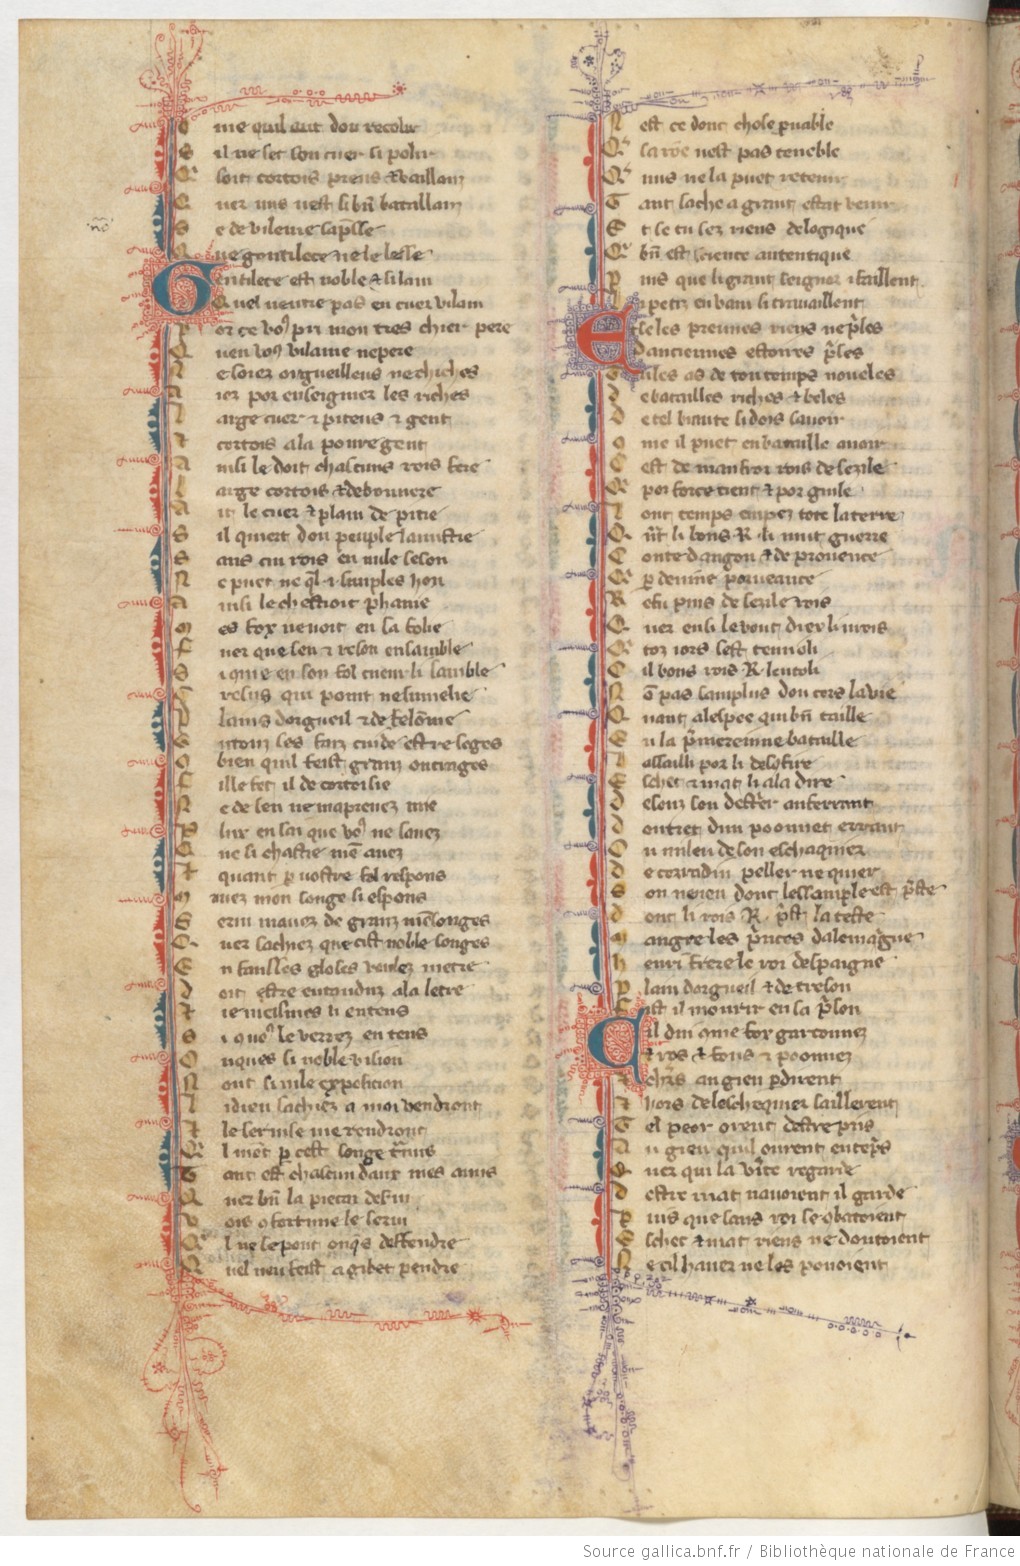 me quil aut dou recolir
S il ne set son cuer si polir
Q' soit cortois preus & vaillanz
C uer uns nest si bn batallanz
S e de vilenie lapelle
Q ue gentilece ne le lesse
G entilece est noble & si lain
Q uel nentre pas en cuer vilain
P or ce vos pri mon tres chier pere
Q uen vos vilaine nepere
N e soiez orgueilleus ne chiches
A ier por enseignier les riches
L arge cuer & piteus & gent
cortois a la poure gent
A insi le doit chascuns rois fere
L arge cortois & debonnere
A it le cuer & plain de pitie
S il quiert dou peuple lamistie
S ans cui rois en nule seson
N e puet ne ql & simples hon
A insi le chestioit phanie
M es fox ne voit en sa folie
F uer que sen & reson ensamble
S i que en son fol cuer li samble
C resus qui point ne sumelie
P lains dorgueil & de felonnie
E n touz ses faiz cuide estre seges
C ombien quil feist granz outrages
F ille fet il de cortoisie
N e de sen ne maprenez mie
P lus en sai que vos ne savez
Q ue si chastie men avez
& quant p vostre fol respons
M avez mon songe si espons
S erui mavez de granz menlonges
C uer sachiez que cist nobles songes
E n fausses gloses voulez metre
D oit estre entenduz a la letre
& ie meismes li entens
S i quos le verrez en tens
O nques si noble vision
N ont si vile expeticion
L i dieu sachiez a moi vendront
& le servise me rendront
Q' l mot p cest songe tmis
T ant est chascun daux mes amis
Q uer bn la piecai deservi
V ois o fortune le servi
Q' l ne se pout onqs deffendre
Q uel neu feist a gibet pendre
N est ce donc chose puable
Q' sa roe nest pas tenable
Q' nus ne la puet retenir
T ant sache a grant estat venir
E t se tu sez riens de logique
Q' bn est science autentique
P uis que li grant seignor i faillent
L i petit en vain si travaillent
E se les preuves riens ne pses
D anciennes estoires pses
T u les as de ton temps noveles
D e batailles riches & beles
D e tel biaute si dois savoir
C ome il puet en bataille avoir
C est de manfroi rois de sezile
Q' por force tient & por guile
L ont temps empez tote la terre
Q nt li bons R. li mut guerre
C onte d'angou & de provence
Q' p devine porveance
R est puis de sezile rois
Q uer ensi le vout diex li vrois
Q' toz iors sest tenu o li
C il bons rois R. len toli
N o pas samplus dou cors la vie
Q uant a lespee qui bn taille
E n la pmereinne bataille
L assailli por li desconfire
E schec & mat li ala dire
D esouz son destrer auferrant
D ou tret dun poonnet errant
O u milieu de son eschaquier
D e corradin peller ne quier
S on neveu dont lessample est pste
D ont li rois R. pst la teste
M augre les pnces dalemaigne
H enri frere le roi despaigne
P lain dorgueil & de treson
F ist il mourir en sa pson
C il dui come fox garconnez
& ros & fous & poonnez
& chrs au gieu pdirent
& hors de leschequier saillerent
T el peor orent destre pris
A u gieu quil ourent entepris
Q uer qui la vite regarde
D estre mat navoient il garde
P uis que sans roi se obatoient
E schec & mat riens ne doutoient
N e cil haver ne les povoient
Source gallica.bnf.fr / Bibliothèque nationale de France